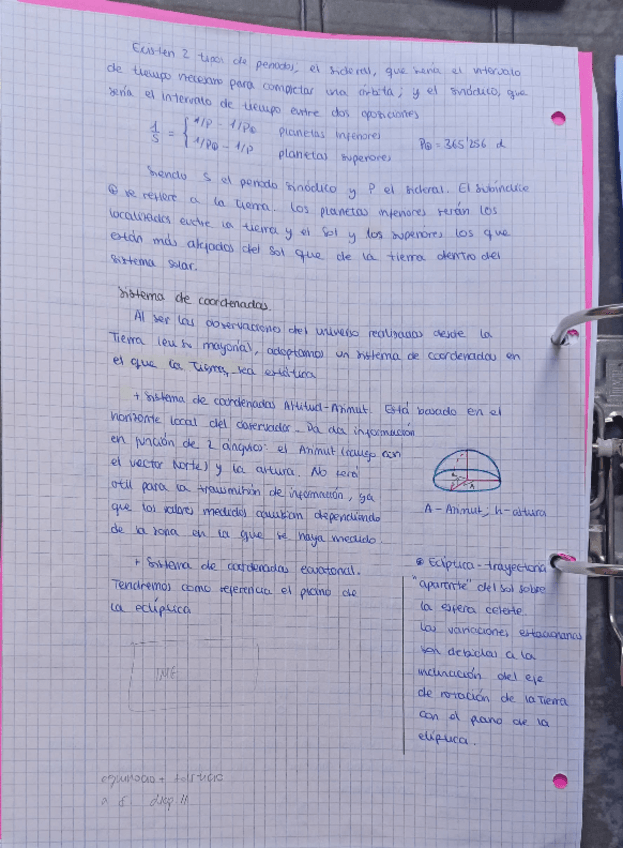 Existen 2 tipos de periodos, el sideral, que sería el intervalo
de tiempo necesario para completar una órbita; y el sinódico, que
sería el intervalo de tiempo entre dos oposiciones
1/S = { 1/P - 1/P⊕ planetas inferiores
1/P⊕ - 1/P planetas superiores
P⊕ = 365'256 d
Siendo S el periodo sinódico y P el sideral. El subíndice
⊕ se refiere a la Tierra. Los planetas inferiores serán los
localizados entre la tierra y el sol y los superiores los que
están más alejados del sol que de la tierra dentro del
sistema solar.
Sistema de coordenadas.
Al ser las observaciones del universo realizadas desde la
Tierra (en su mayoría), adoptamos un sistema de coordenadas en
el que la Tierra sea estática
+ Sistema de coordenadas Altitud-Azimut. Está basado en el
horizonte local del observador. Da información
en función de 2 ángulos: el Azimut (ángulo con
el vector Norte) y la altura. No será
útil para la transmisión de información, ya
que los valores medidos cambian dependiendo
de la zona en la que se haya medido.
A - Azimut; h - altura
+ Sistema de coordenadas ecuatorial.
Tendremos como referencia el plano de
la eclíptica
IMG
equinoccio + solsticio
Eclíptica - trayectoria
"aparente" del sol sobre
la esfera celeste
Las variaciones estacionarias
son debidas a la
inclinación del eje
de rotación de la Tierra
con el plano de la
elíptica.